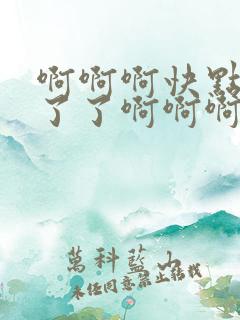 啊啊啊快點
了了啊啊啊
萬科藍山
未经同意禁止转载